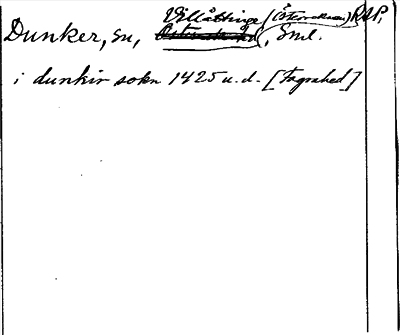 Villåttinge (Österrekarne) RAP,
Dunker, sn, , Sml.
i dunkir sokn 1425 u.d. [Fagrahed]